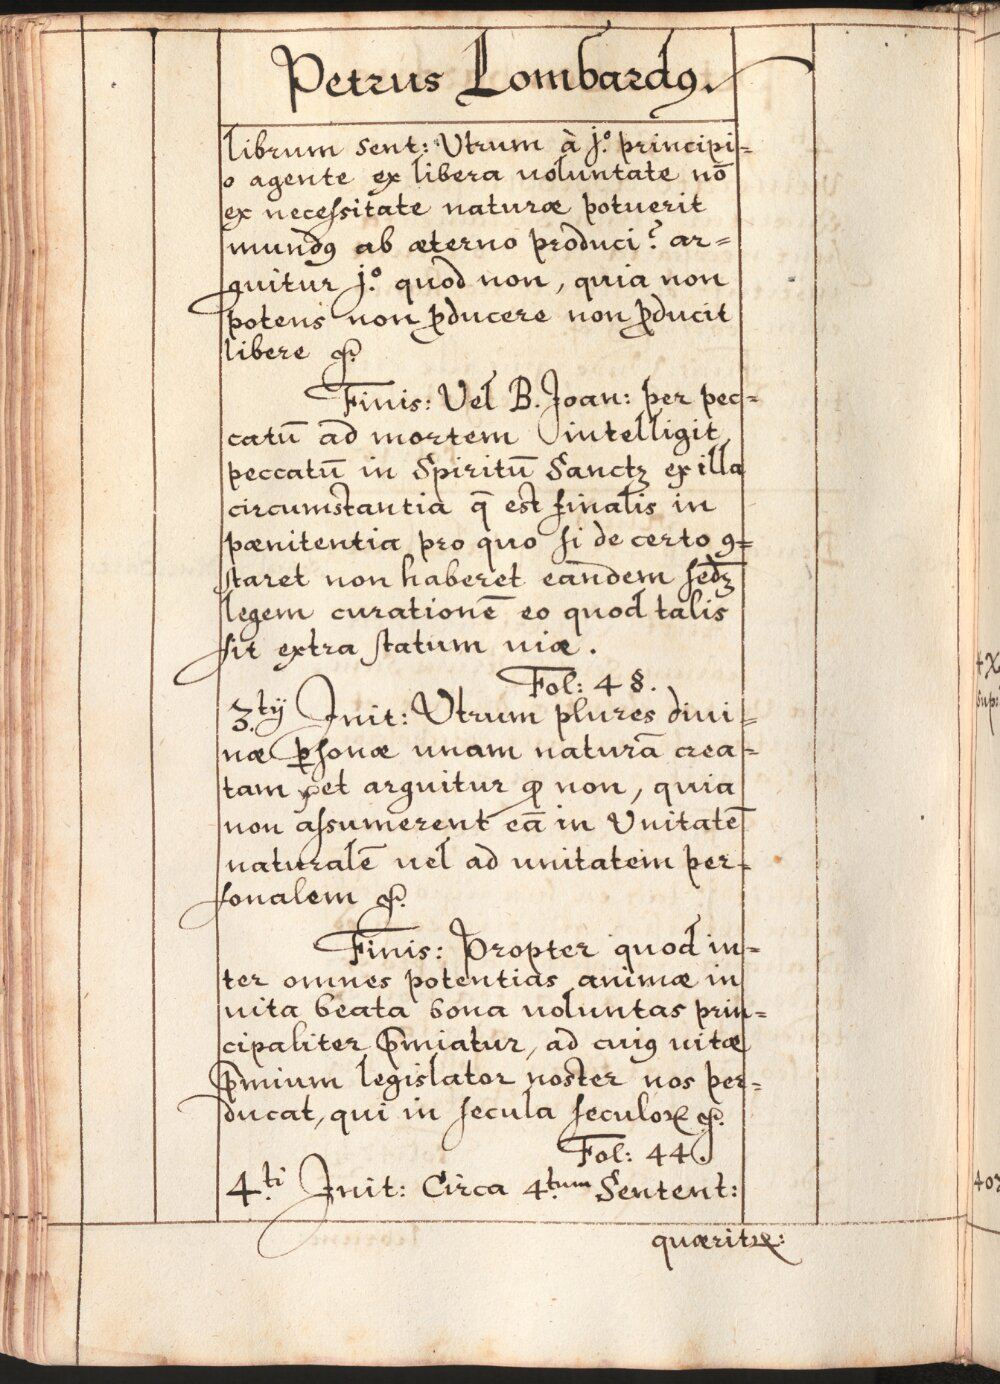 Petrus Lombardꝰ.
librum Sent: Utrum à j.º principi=
o agente ex libera voluntate nō
ex necessitate naturæ potuerit
mundꝰ ab æterno produci? ar=
guitur j.º quod non, quia non
potens non ꝓducere non ꝓducit
libere &.
Finis: Vel B. Joan: per pec=
catū ad mortem intelligit
peccatū in Spiritū Sanctꝫ ex illa
circumstantia q̄ est finalis in
pænitentia pro quo si de certo ꝯ=
staret non haberet eandem sedꝫ
legem curationē eo quod talis
sit extra statum viæ.
Fol: 48.
3.tij Jnit: Utrum plures divi=
næ ꝑsonæ unam naturā crea=
tam et arguitur ꝙ non, quia
non assumerent eā in Unitatē
naturalē vel ad unitatem per=
sonalem &.
Finis: Propter quod in=
ter omnes potentias animæ in
vita beata bona voluntas prin=
cipaliter p̄miatur, ad cuiꝰ vitæ
p̄mium legislator noster nos per=
ducat, qui in secula seculoꝝ &.
Fol: 44.
4.ti Jnit: Circa 4.tum Sentent:
quæritꝛ:
4X
supi
407